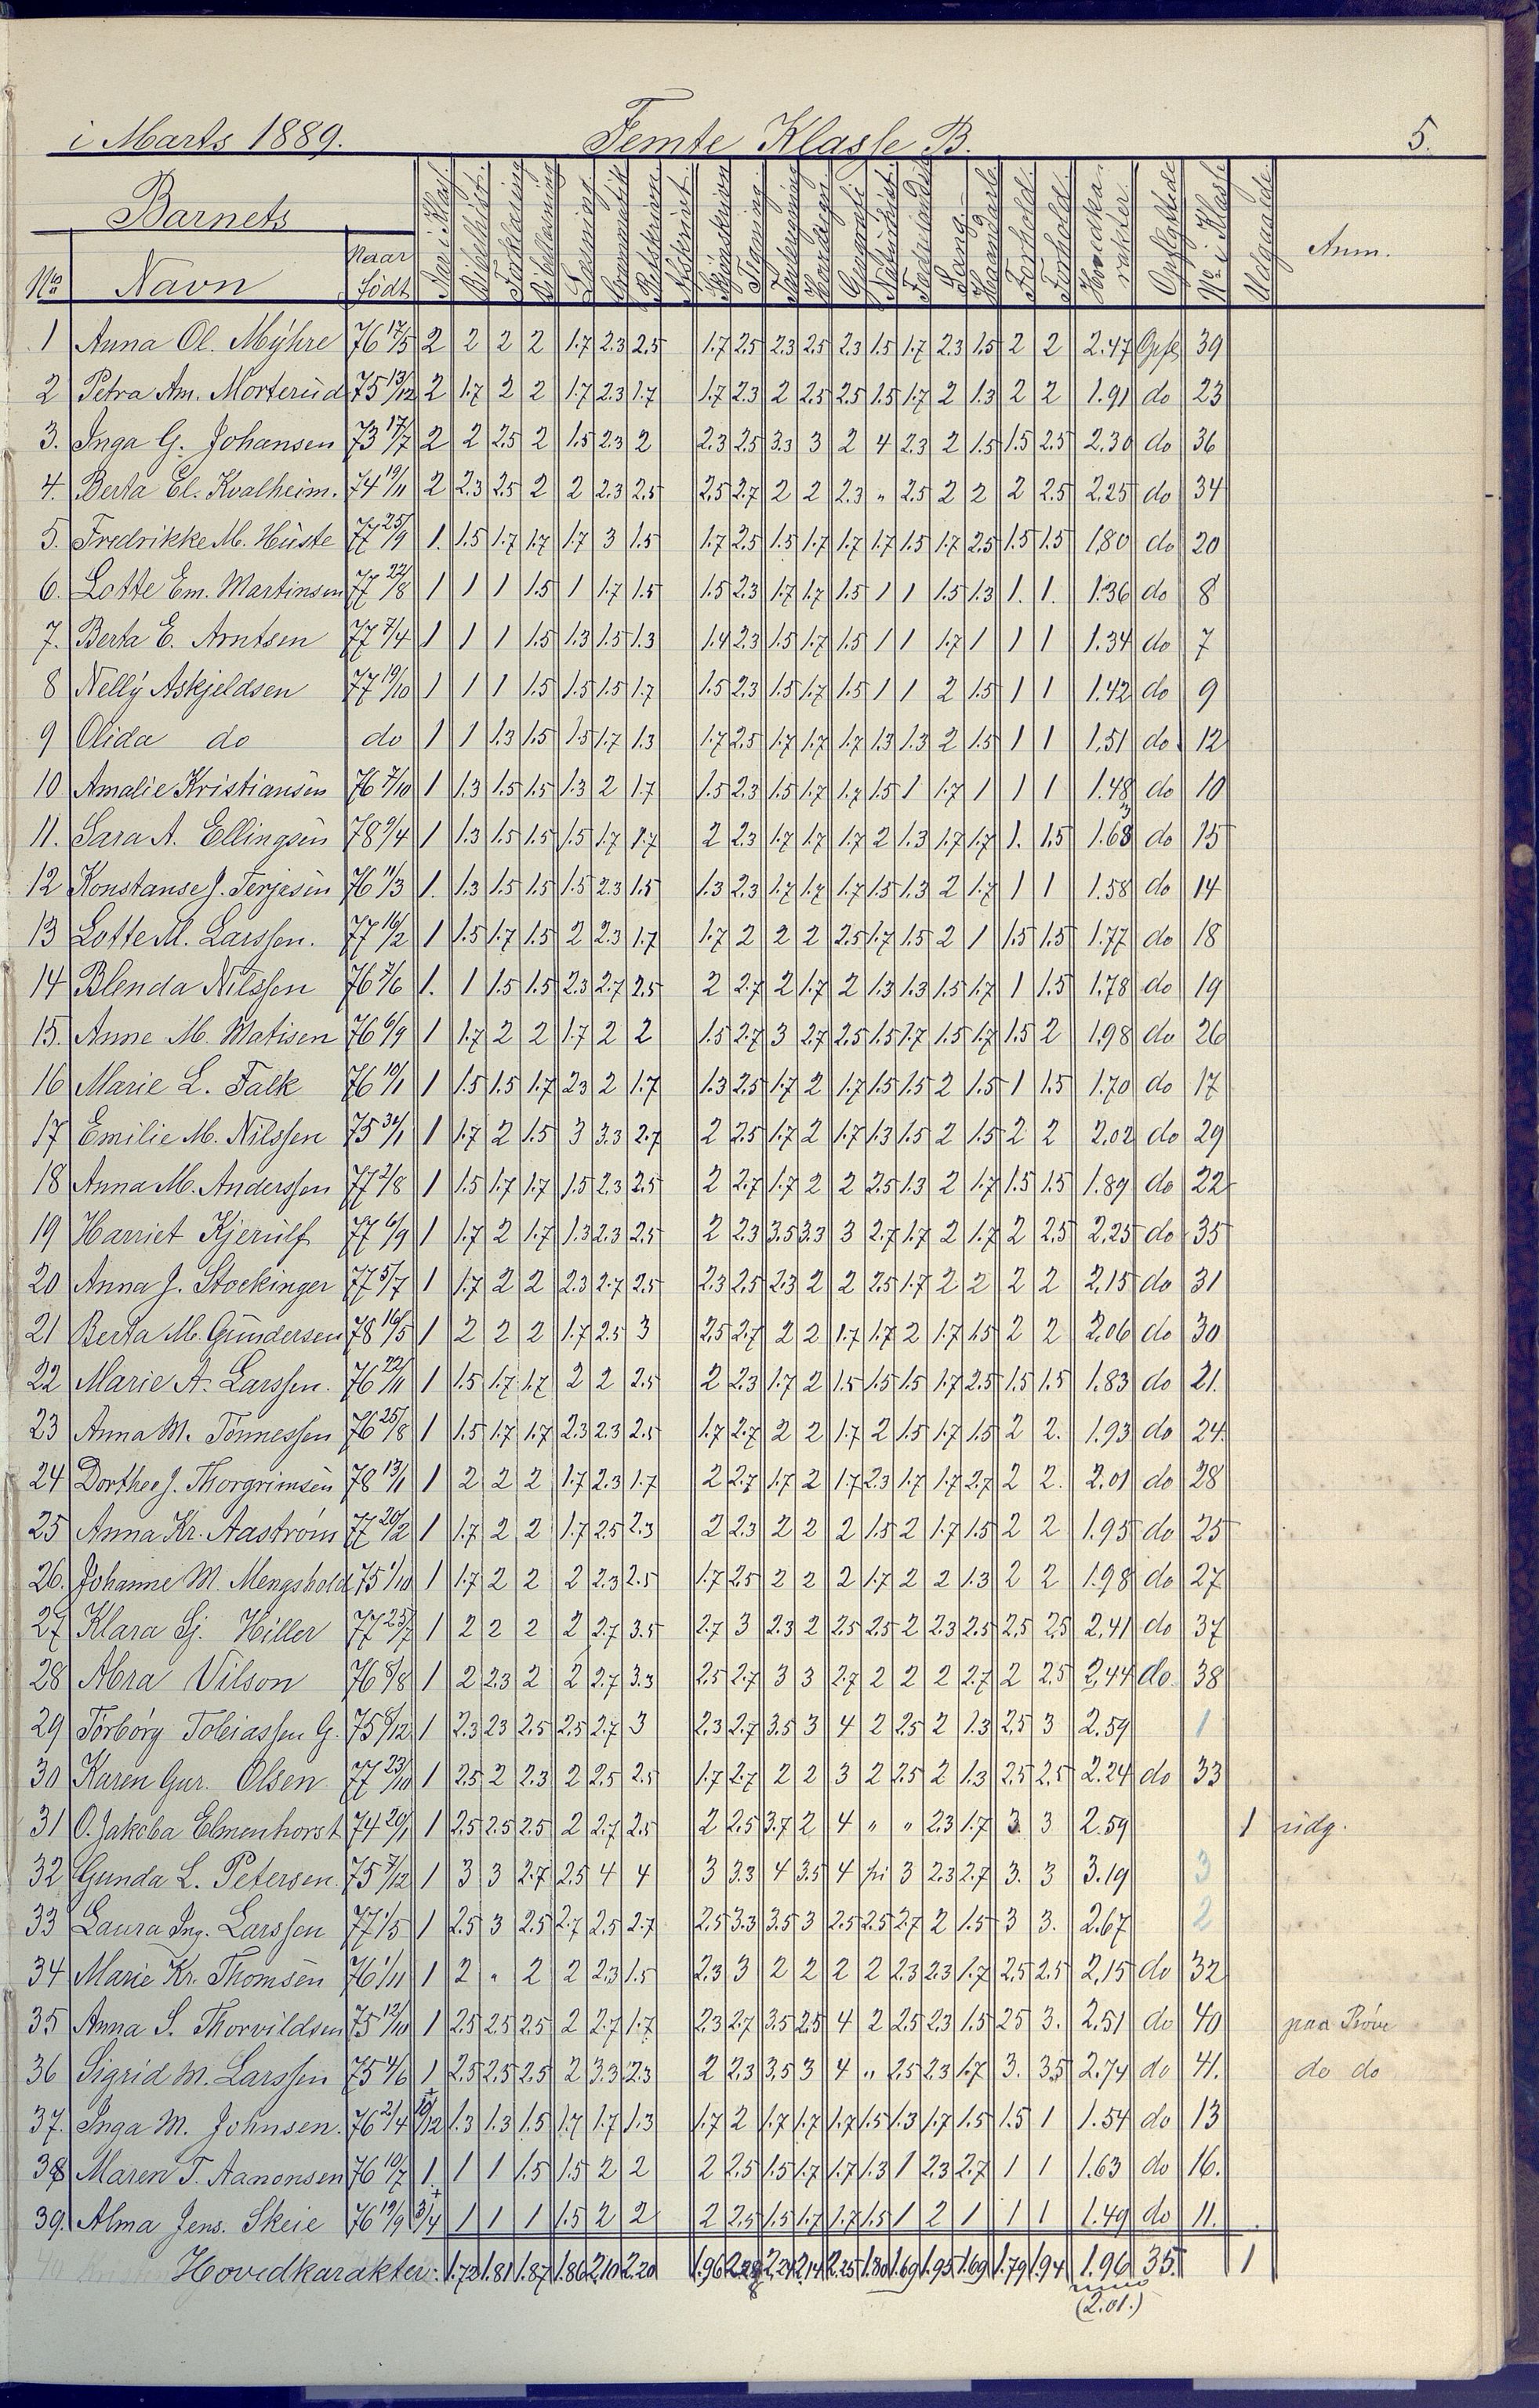 i Marts 1889. Femte Klasse B. 5.
Barnets
No Navn Naar Født Aar i Klas. Bibelhist. Forklaring Bibellæsning Læsning Grammatik Retskrivn. Afskrivt. Skjønskrivn Tegning Tavleregning Hovedregn. Geografi Naturhist. Fædrelandsh. Sang Haandarb. Forhold. Forhold. Hovedkarakter Opflyttede No i Klasse Udgaaede Anm.
1 Anna Ol. Myhre 76 17/5 2 2 2 2 1.7 2.3 2.5 1.7 2.5 2.3 2.5 2.3 1.5 1.7 2.3 1.5 2 2 2.47 Opfl 39
2 Petra Am. Morterud 75 13/12 2 1.7 2 2 1.7 2.3 1.7 1.7 2.3 2 2.5 2.5 1.5 1.7 2 1.3 2 2 1.91 do 23
3. Inga G. Johansen 73 17/7 2 2 2.5 2 1.5 2.3 2 2.3 2.5 3.3 3 2 4 2.3 2 1.5 1.5 2.5 2.30 do 36
4. Berta El. Kvalheim. 74 19/11 2 2.3 2.5 2 2 2.3 2.5 2.5 2.7 2 2 2.3 " 2.5 2 2 2 2.5 2.25 do 34
5. Fredrikke M. Huste 77 25/9 1. 1.5 1.7 1.7 1.7 3 1.5 1.7 2.5 1.5 1.7 1.7 1.7 1.5 1.7 2.5 1.5 1.5 1.80 do 20
6. Lotte Em. Martinsen 77 22/8 1 1 1 1.5 1 1.7 1.5 1.5 2.3 1.7 1.7 1.5 1 1 1.5 1.3 1. 1. 1.36 do 8
7. Berta E. Arntsen 77 7/4 1 1 1 1.5 1.3 1.5 1.3 1.4 2.3 1.5 1.7 1.5 1 1 1.7 1 1 1 1.34 do 7
8 Nelly Askjeldsen 77 19/10 1 1 1 1.5 1.5 1.5 1.7 1.5 2.3 1.5 1.7 1.5 1 1 2 1.5 1 1 1.42 do 9
9 Olida do do 1 1 1.3 1.5 1.5 1.7 1.3 1.7 2.5 1.7 1.7 1.7 1.3 1.3 2 1.5 1 1 1.51 do 12
10 Amalie Kristiansen 76 7/10 1 1.3 1.5 1.5 1.3 2 1.7 1.5 2.3 1.5 1.7 1.7 1.5 1 1.7 1 1 1 1.48 do 10
11. Sara A. Ellingsen 78 9/4 1 1.3 1.5 1.5 1.5 1.7 1.7 2 2.3 1.7 1.7 1.7 2 1.3 1.7 1.7 1. 1.5 1.63 do 15
12 Konstanse J. Terjesen 76 11/3 1. 1.3 1.5 1.5 1.5 2.3 1.5 1.3 2.3 1.7 1.7 1.7 1.5 1.3 2 1.7 1 1 1.58 do 14
13 Lotte M. Larssen. 77 16/2 1 1.5 1.7 1.5 2 2.3 1.7 1.7 2 2 2 2.5 1.7 1.5 2 1 1.5 1.5 1.77 do 18
14 Blenda Nilssen 76 7/6 1. 1 1.5 1.5 2.3 2.7 2.5 2 2.7 2 1.7 2 1.3 1.3 1.5 1.7 1 1.5 1.78 do 19
15. Anne M. Matisen 76 6/9 1 1.7 2 2 1.7 2 2 1.5 2.7 3 2.7 2.5 1.5 1.7 1.5 1.7 1.5 2 1.98 do 26
16 Marie L. Falk 76 10/1 1 1.5 1.5 1.7 2.3 2 1.7 1.3 2.5 1.7 2 1.7 1.5 1.5 2 1.5 1 1.5 1.70 do 17
17 Emilie M. Nilssen 75 31/1 1 1.7 2 1.5 3 3.3 2.7 2 2.5 1.7 2 1.7 1.3 1.5 2 1.5 2 2 2.02 do 29
18 Anna M. Anderssen 77 2/8 1 1.5 1.7 1.7 1.5 2.3 2.5 2 2.7 1.7 2 2 2.5 1.3 2 1.7 1.5 1.5 1.89 do 22
19 Harriet Kjerulf 77 6/9 1 1.7 2 1.7 1.3 2.3 2.5 2 2.3 3.5 3.3 3 2.7 1.7 2 1.7 2 2.5 2.25 do 35
20 Anna J. Stockinger 77 5/7 1 1.7 2 2 2.3 2.7 2.5 2.3 2.5 2.3 2 2 2.5 1.7 2 2 2 2 2.15 do 31
21 Berta M. Gundersen 78 16/5 1 2 2 2 1.7 2.5 3 2.5 2.7 2 2 1.7 1.7 2 1.7 1.5 2 2 2.06 do 30
22 Marie A. Larssen. 76 22/11 1 1.5 1.7 1.7 2 2 2.5 2 2.3 1.7 2 1.5 1.5 1.5 1.7 2.5 1.5 1.5 1.83 do 21.
23 Anna M. Tønnessen 76 25/8 1 1.5 1.7 1.7 2.3 2.3 2.5 1.7 2.7 2 2 1.7 2 1.5 1.7 1.5 2 2. 1.93 do 24.
24 Dorthee J. Thorgrimsen 78 13/1 1 2 2 2 1.7 2.3 1.7 2 2.7 1.7 2 1.7 2.3 1.7 1.7 2.7 2 2. 2.01 do 28
25 Anna Kr. Aastrøm 77 20/2 1 1.7 2 2 1.7 2.5 2.3 2 2.3 2 2 2 1.5 2 1.7 1.5 2 2 1.95 do 25
26. Johanne M. Mengshold 75 1/10 1 1.7 2 2 2 2.3 2.5 1.7 2.5 2 2 2 1.7 2 2 1.3 2 2 1.98 do 27
27 Klara Sj. Hiller 77 25/7 1 2 2 2 2 2.7 3.5 2.7 3 2.3 2 2.5 2.5 2 2.3 2.5 2.5 2.5 2.41 do 37
28 Abra Vilson 76 8/8 1 2 2.3 2 2 2.7 3.3 2.5 2.7 3 3 2.7 2 2 2 2.7 2 2.5 2.44 do 38
29 Torborg Tobiassen G. 75 8/12 1 2.3 2.3 2.5 2.5 2.7 3 2.3 2.7 3.5 3 4 2 2.5 2 1.3 2.5 3 2.59 1
30 Karen Gur. Olsen 77 23/10 1 2.5 2 2.3 2 2.5 2.5 1.7 2.7 2 2 3 2 2.5 2 1.3 2.5 2.5 2.24 do 33
31 O. Jakoba Elmenhorst 74 20/1 1 2.5 2.5 2.5 2 2.7 2.5 2 2.5 3.7 2 4 " " 2.3 1.7 3. 3 2.59 1 udg.
32 Gunda L. Petersen 75 7/12 1 3 3 2.7 2.5 4 4 3 3.3 4 3.5 4 3 2.3 2.7 3. 3 3.19 3
33 Laura Ing. Larssen 77 1/5 1 2.5 3 2.5 2.7 2.5 2.7 2.5 3.3 3.5 3 2.5 2.5 2.7 2 1.5 3 3. 2.67 2
34 Marie Kr. Thomsen 76 1/11 1 2 " 2 2 2.3 1.5 2.3 3 2 2 2 2 2.3 2.3 1.7 2.5 2.5 2.15 do 32
35 Anna S. Thorvildsen 75 12/10 1 2.5 2.5 2.5 2 2.7 1.7 2.3 2.7 3.5 2.5 4 2 2.5 2.3 1.5 2.5 3. 2.51 do 40 paa Prøve
36 Sigrid M. Larssen 75 4/6 1 2.5 2.5 2.5 2 3.3 2.3 2 2.3 3.5 3 4 " 2.5 2.3 1.7 3. 3.5 2.74 do 41. do do
37. Inga M. Johnsen. 76 2/4 10/12 1.3 1.3 1.5 1.7 1.7 1.3 1.7 2 1.7 1.7 1.7 1.5 1.3 1.7 1.5 1.5 1 1.54 do 13
38 Maren T. Aanonsen 76 10/7 1. 1 1 1.5 1.5 2 2 2 2.5 1.5 1.7 1.7 1.3 1 2.3 2.7 1 1 1.63 do 16.
39. Alma Jens. Skeie 76 19/9 3/4 1 1 1 1.5 2 2 2 2.5 1.5 1.7 1.7 1.5 1 2 1 1 1 1.49 do 11.
Hovedkarakter. 1.73 1.81 1.87 1.86 2.10 2.20 1.96 2.28 2.21 2.14 2.25 1.80 1.69 1.95 1.69 1.79 1.94 1.96 35. 1
(2.01.)